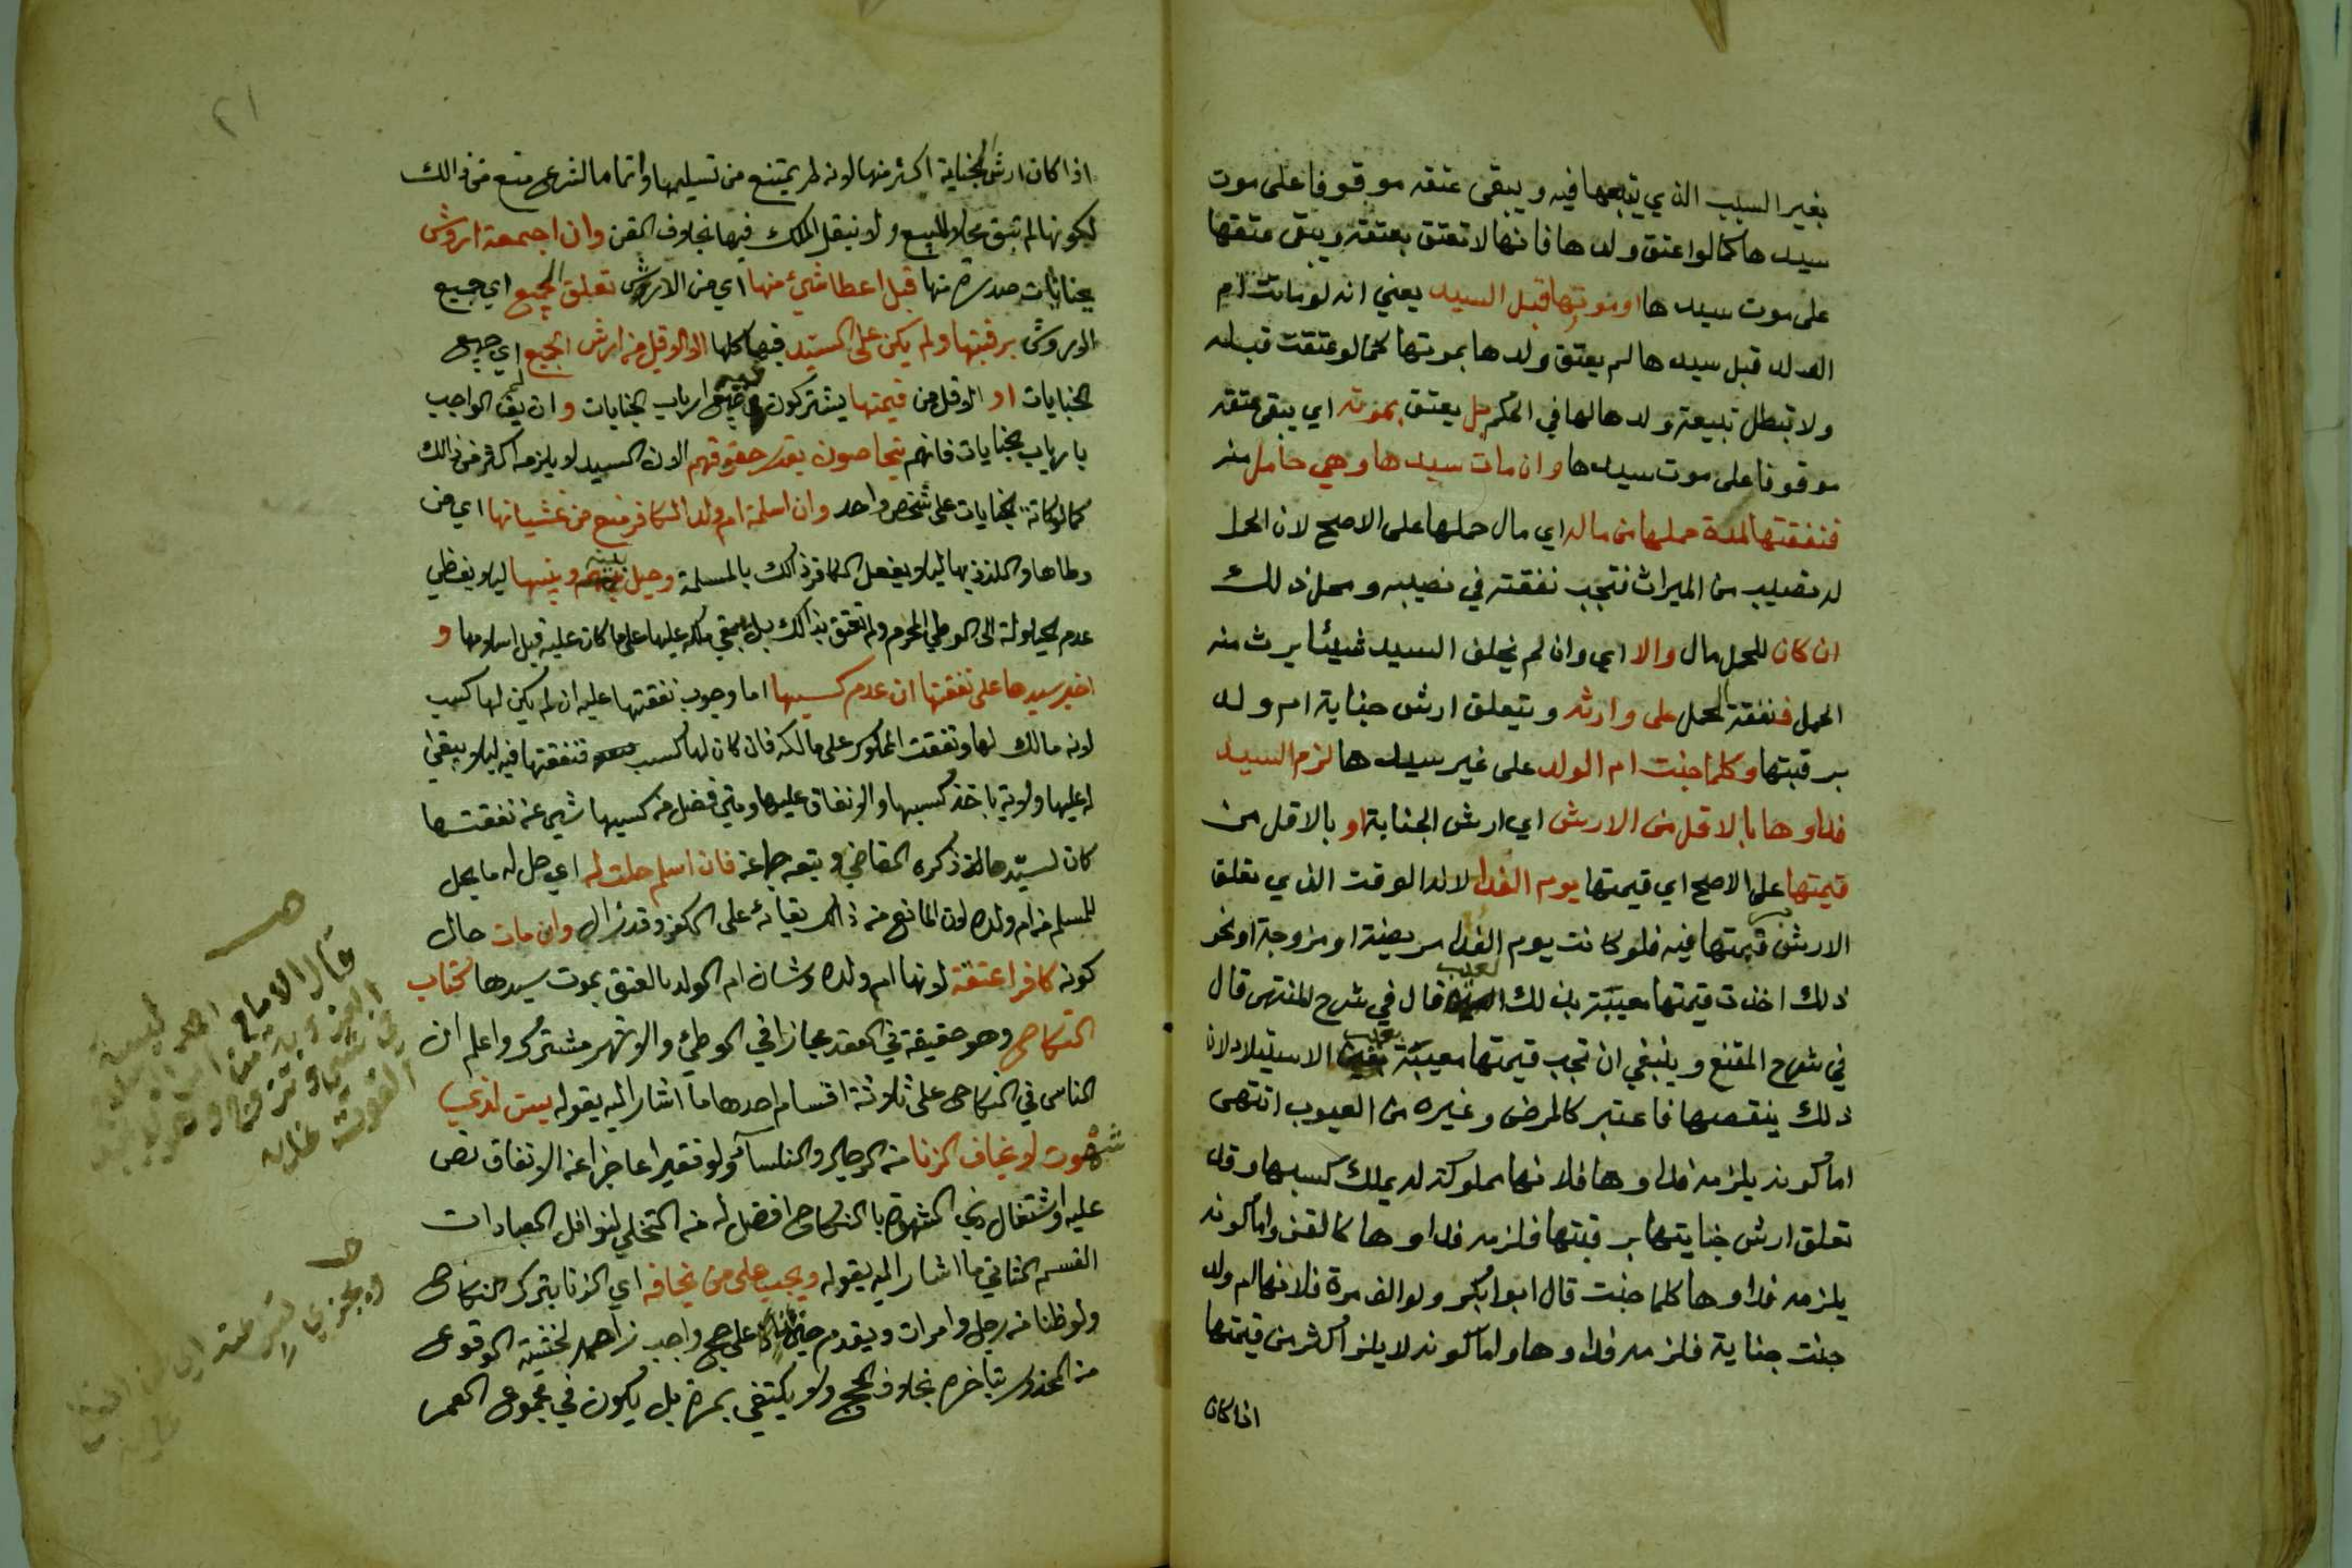 بغير السبب الذي يتبعها فيه ويبقى عتقه موقوفا على موت
سيدها كما لو اعتق ولدها فانها لا تعتق بعتقه ويبقى عتقها
على موت سيدها او موتها قبل السيد يعني انه لو ماتت ام
الولد قبل سيدها لم يعتق ولدها بموتها كما لو عتقت قبله
ولا تبطل تبيعة ولدها لها في الحكم بل يعتق بموته اي يبقى عتقه
موقوفا على موت سيدها وان مات سيدها وهي حامل منه
فنفقتها لمدة حملها من ماله اي مال حملها على الاصح لان الحمل
له نصيب من الميراث فتجب نفقته في نصيبه ومحل ذلك
ان كان للحمل مال والا اي وان لم يخلف السيد شيئا يرث منه
الحمل فنفقة الحمل على وارثه ويتعلق ارش جناية ام ولد
برقبتها وكلما جنت ام الولد على غير سيدها لزم السيد
فداوها بالاقل من الارش اي ارش الجناية او بالاقل من
قيمتها على الاصح اي قيمتها يوم الفدا لانه الوقت الذي تعلق
الارش قيمتها فيه فلو كانت يوم الفدا مريضة او مزوجة او نحو
ذلك اخذت قيمتها معيبة بذلك العيب قال في شرح المنتهى قال
في شرح المقنع وينبغي ان تجب قيمتها معيبة بعيب الاستيلاد لان
ذلك ينقصها فاعتبر كالمرض وغيره من العيوب انتهى
اما كونه يلزمه فداوها فلانها مملوكة له يملك كسبها وقد
تعلق ارش جنايتها برقبتها فلزمه فداوها كالقن واما كونه
يلزمه فداوها كلما جنت قال ابو بكر ولو الف مرة فلانها ام ولد
جنت جناية فلزمه فداوها واما كونه لا يلزم اكثر من قيمتها
اذا كان
٢١
اذا كان ارش الجناية اكثر منها لانه لم يمتنع من تسليمها وانما الشرع منع من ذالك
لكونها لم تبق محلا للبيع ولا نيقل الملك فيها بخلاف القن وان اجمعة اروش
بجنايات صدرة منها قبل اعطا شيء منها اي من الاروش تعلق الجميع اي جميع
الاروش برقبتها ولم يكن على السيد فيها كلها الا الاقل من ارش الجميع اي جميع
الجنايات او الاقل من قيمتها يشتركون فيه ارباب الجنايات وان لم يف الواجب
بارباب الجنايات فانهم يتحاصون بقدر حقوقهم لان السيد لا يلزمه اكثر من ذالك
كما لو كانة الجنايات على شخص واحد وان اسلمة ام ولد الكافر منع من غشيانها اي من
وطاها والتلذذ بها ليلا يفعل الكافر ذالك بالمسلمة وحيل بينه وبينها ليلا يفظي
عدم الحيلولة الى الوطي المحرم ولم تعتق بذالك بل يبقي ملكه عليها على ما كان عليه قبل اسلامها و
اجبر سيدها على نفقتها ان عدم كسبها اما وجوب نفقتها عليه ان لم يكن لها كسب
لانه مالك لها ونفقت المملوك على مالكه فان كان لها كسب فنفقتها فيه ليلا يبقى
له عليها ولاية باخذ كسبها والانفاق عليها ومتى فضل من كسبها شي عن نفقتها
كان لسيدها ذكره القاضي وتبعه جماعة فان اسلم حلت له اي حل له ما يحل
للمسلم من ام ولده لان المانع من ذالك بقائه على الكفر وقد زال وان مات حال
كونه كافرا عتقة لانها ام ولده وشان ام الولد بالعتق بموت سيدها كتاب
النكاح وهو حقيقة في العقد مجازا في الوطئ والاشهر مشترك واعلم ان
الناس في النكاح على ثلاثة اقسام احدها ما اشار اليه بقوله يسن لذي
شهوت لا يخاف الزنا من الرجال والنساء ولو فقيرا عاجزا عن الانفاق نص
عليه واشتغال ذي الشهوة بالنكاح افضل له من التخلي لنوافل العبادات
القسم الثاني ما اشار اليه بقوله ويجب على من يخافه اي الزنا بترك النكاح
ولو ظنا من رجل وامرات ويقدم حينئذ على حج واجب زاحمه لخشية الوقوع
من المحذور بتاخره بخلاف الحج ولا يكتفي بمرة بل يكون في مجموع العمر
قال الامام احمد